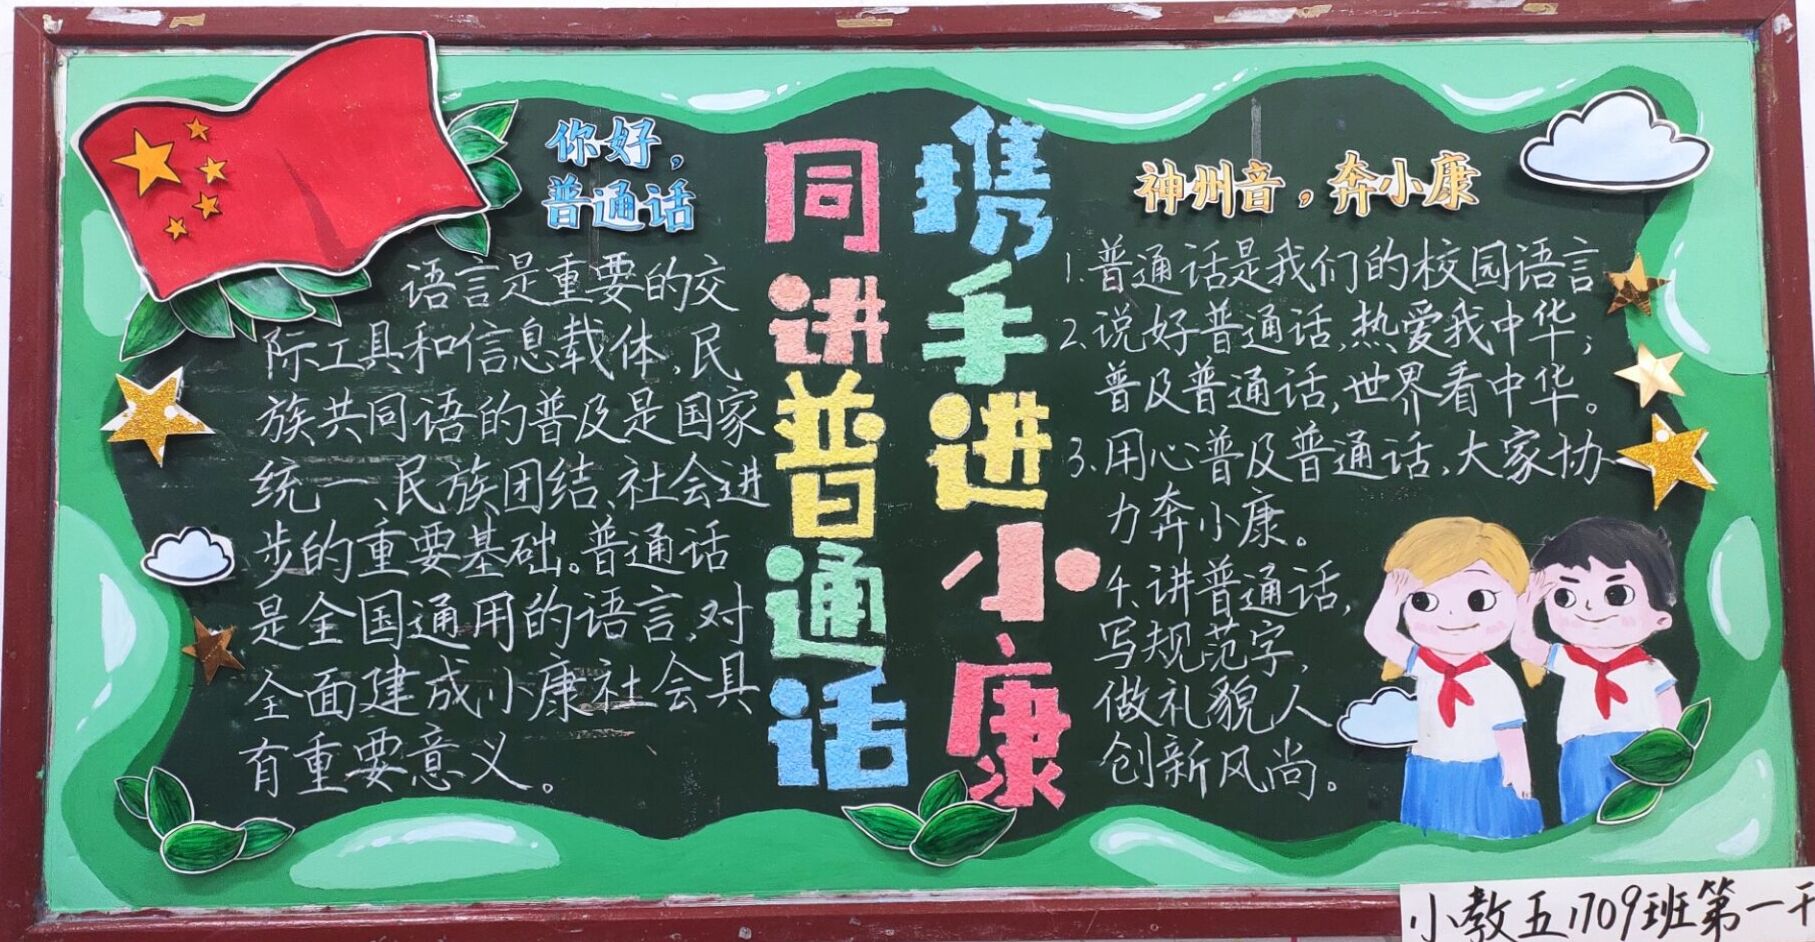 你好，
普通话
语言是重要的交
际工具和信息载体,民
族共同语的普及是国家
统一、民族团结、社会进
步的重要基础。普通话
是全国通用的语言,对
全面建成小康社会具
有重要意义。
同讲普通话
携手进小康
神州音，奔小康
1.普通话是我们的校园语言
2.说好普通话,热爱我中华;
普及普通话,世界看中华。
3.用心普及普通话,大家协
力奔小康。
4.讲普通话,
写规范字,
做礼貌人
创新风尚。
小教五1709班第一